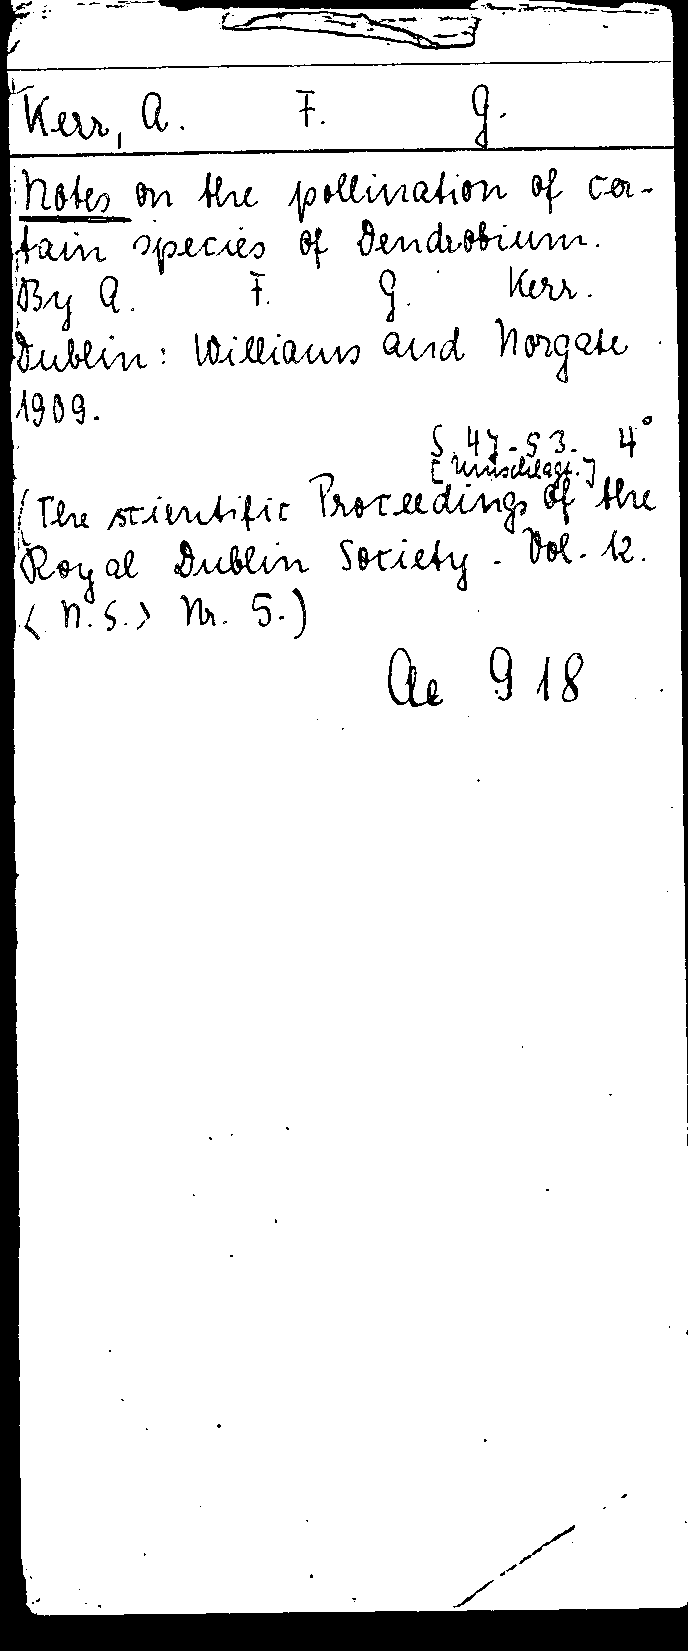 Kerr, A. F. G.
Notes on the pollination of cer-
tain species of Dendrobium.
By A. F. G. Kerr.
Dublin: Williams and Norgate
1909.
S. 47-53. 4°
[Umschlagt.]
(The scientific Proceedings of the
Royal Dublin Society. Vol. 12.
<N.S.> Nr. 5.)
Ae 918